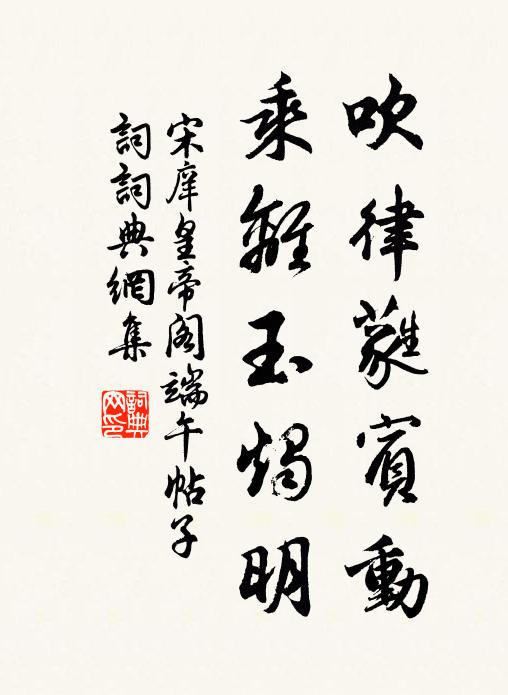 吹律蕤賓動
乘離玉燭明
宋庠皇帝閣端午帖子
詞詞典網集
詞典网印